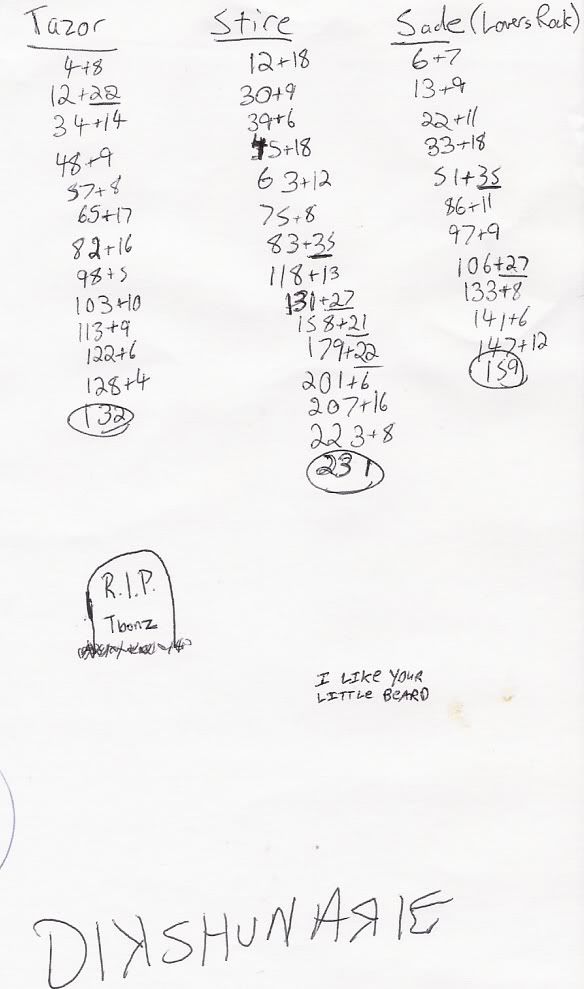 Tazor
4+8
12+22
34+14
48+9
57+8
65+17
82+16
98+5
103+10
113+9
122+6
128+4
132
Stire
12+18
30+9
39+6
45+18
63+12
75+8
83+35
118+13
131+27
158+21
179+22
201+6
207+16
223+8
231
Sade (Lovers Rock)
6+7
13+9
22+11
33+18
51+35
86+11
97+9
106+27
133+8
141+6
147+12
159
R.I.P.
Tbonz
I LIKE YOUR
LITTLE BEARD
DIKSHUNARIE